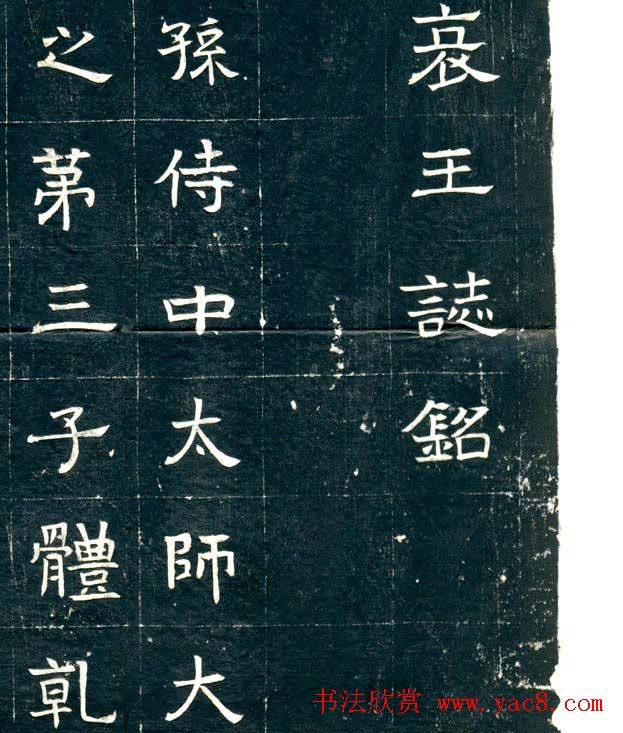 哀王誌銘
孫侍中太師大
之第三子體乹
书法欣赏 www.yac8.com